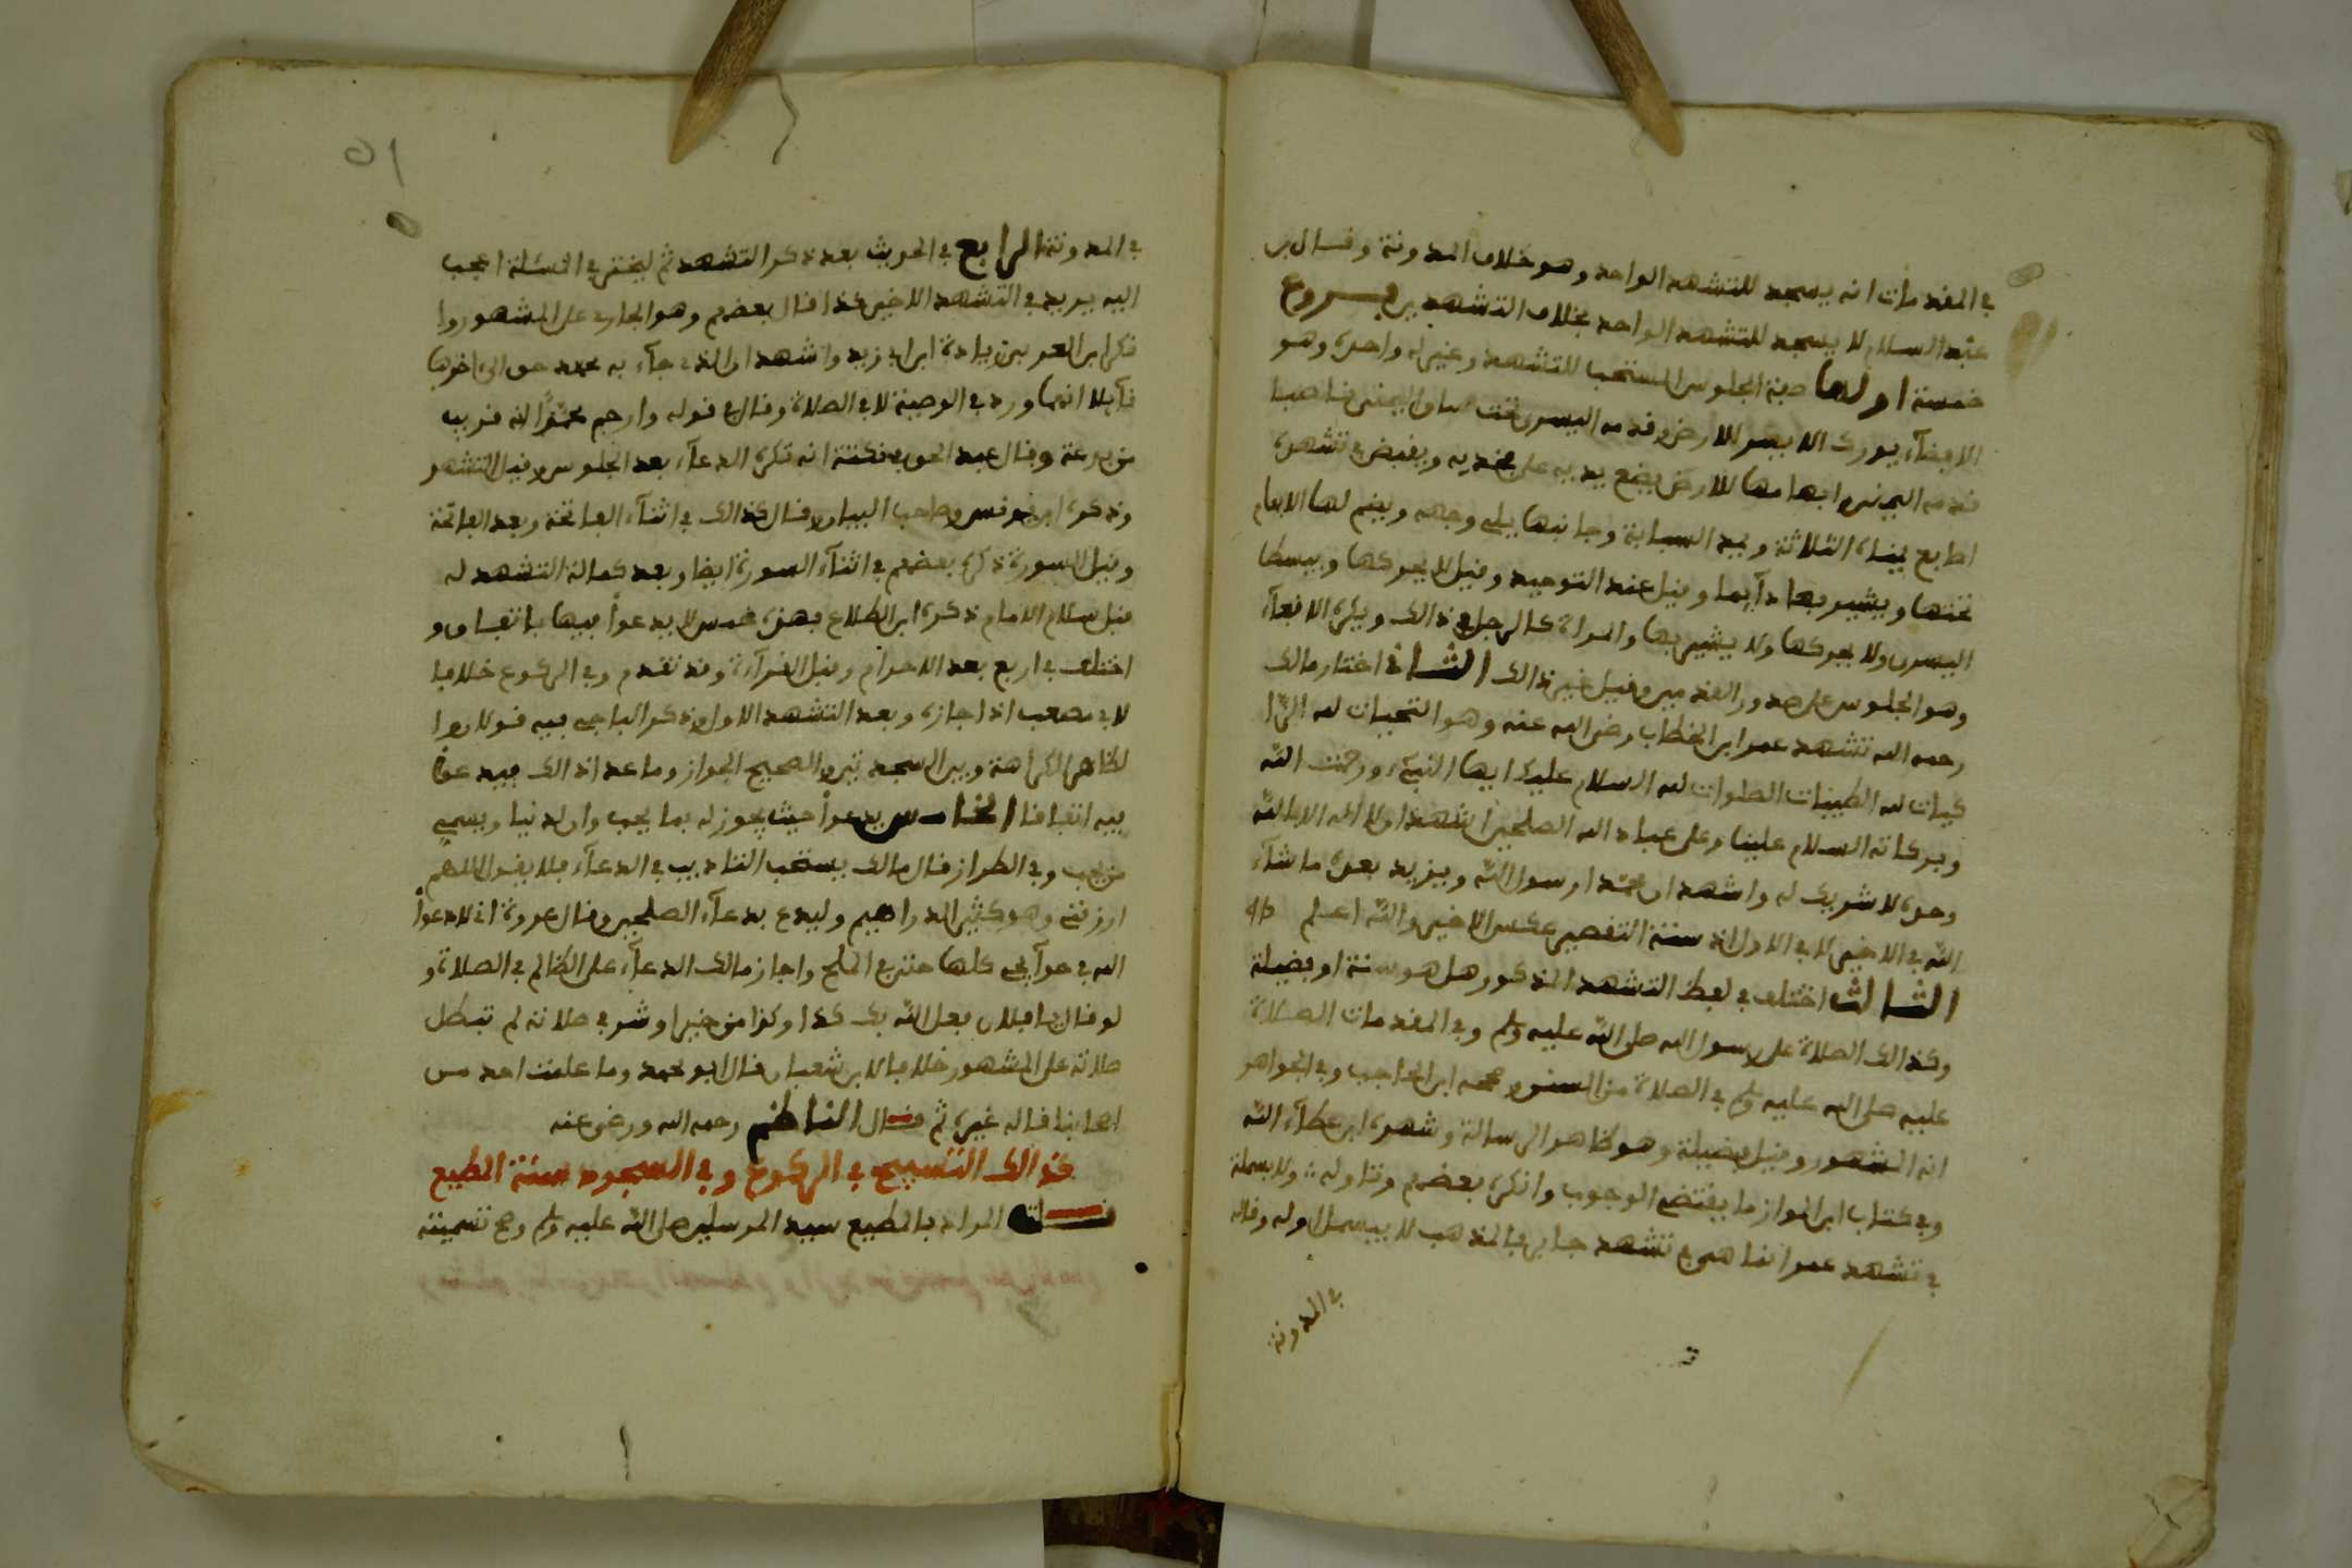 في المقدمات انه يسجد للتشهد الواحد وهو خلاف المدونة وقال بن
عبد السلام لا يسجد للتشهد الواحد بخلاف التشهدين فروع
خمسة اولها صفة الجلوس المستحبا للتشهد وغيره واحدة وهو
الافضآء بورك الايسر للارض وقدمه اليسرى تحت ساق اليمنى ناصبا
قدمه اليمنى وابهامها للارض يضع يديه على فخذيه ويقبض في تشهده
اصابع يمناه الثلاثة ويمد السبابة وجانبها يلي وجهه ويضم لها الابهام
تحتها ويشير بها دآيما وقيل عند التوحيد وقيل لا يحركها ويبسط
اليسرى ولا يحركها ولا يشير بها والمراة كالرجل في ذالك ويكره الاقعآء
وهو الجلوس على صدور القدمين وقيل غير ذالك الثاني اختار مالك
رحمه الله تشهد عمر ابن الخطاب رضي الله عنه وهو التحيات لله الزا
كيات لله الطيبات الصلوات لله السلام عليك ايها النبيء ورحمت الله
وبركاته السلام علينا وعلى عباد الله الصلحين اشهد ان لا اله الا الله
وحده لا شريك له واشهد ان محمدا رسول الله ويزيد بعده ما شآء
الله في الاخير لا في الاول اذ سنة التقصير عكس الاخير والله اعلم
الثالث اختلف في لفظ التشهد المذكور هل هو سنة او فضيلة
وكذالك الصلاة على رسول الله صلى الله عليه وسلم وفي المقدمات الصلاة
عليه صلى الله عليه وسلم في الصلاة من السنن وصححه ابن الحاجب وفي الجواهر
انه المشهور وقيل فضيلة وهو ظاهر الرسالة وشهره ابن عطآء الله
وفي كتاب ابن المواز ما يقتضي الوجوب وانكره بعضهم وتاوله ولا بسملة
في تشهد عمر انما هي في تشهد جابر فالمذهب لا يبسمل اوله وقاله
في المدونة
٥١
في المدونة الرابع في الحديث بعد ذكر التشهد ثم ليختر في المسئلة اعجب
اليه يريد في التشهد الاخير كذا قال بعضهم وهو الجاري على المشهور وا
نكر ابن العربي زيادة ابن ابي زيد واشهد ان الذي جآء به محمد حق الى اخرها
قآيلا انما ورد في الوصية لا في الصلاة وقال في قوله وارحم محمدًا انه قريب
من بدعة وقال عبد الحق في نكته انه تكره الدعآء بعد الجلوس وقبل التشهد
وذكره ابن يونس وصاحب البيان وقال كذالك في اثنآء الفاتحة وبعد الفاتحة
وقبل السورة ذكره بعضهم في اثنآء السورة ايضا وبعد كمالة التشهد له
قبل سلام الامام ذكره ابن الطلاع فهذه خمس لا يدعوا فيها باتفاق و
اختلف في اربع بعد الاحرام وقبل القرآءة وقد تقدم وفي الركوع خلافا
لابي مصعب اذ اجازه وبعد التشهد الاول وذكر الباجي فيه قولان وا
لظاهر الكراهة وبين السجدتين والصحيح الجواز وما عدا ذالك فيدعوا
فيه اتفاقا الخامس يدعوا حيث يجوز له بما يحب وان لدنيا ويسمي
من يحب وفي الطراز قال مالك يستحب التاديب في الدعآء فلا يقول اللهم
ارزقني وهو كثير الدراهيم وليدع بدعآء الصلحين وقال عروة اني لادعوا
الله في حوآيجي كلها حتى في الملح واجاز مالك الدعآء على الظالم في الصلاة و
لو قال يا فلان فعل الله بك كذا وكذا من خير او شر في صلاته لم تبطل
صلاته على المشهور خلافا لابن شعبان قال ابو محمد وما علمت احد من
اصحابنا قاله غيره ثم قال الناظم رحمه الله ورضي عنه
كذالك التسبيح في الركوع وفي السجود سنة المطيع
قلت المراد بالمطيع سيد المرسلين صلى الله عليه وسلم وصح تسميته